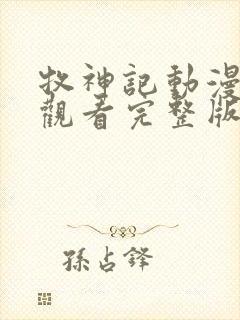 牧神記動漫
觀看完整版
孫占鋒